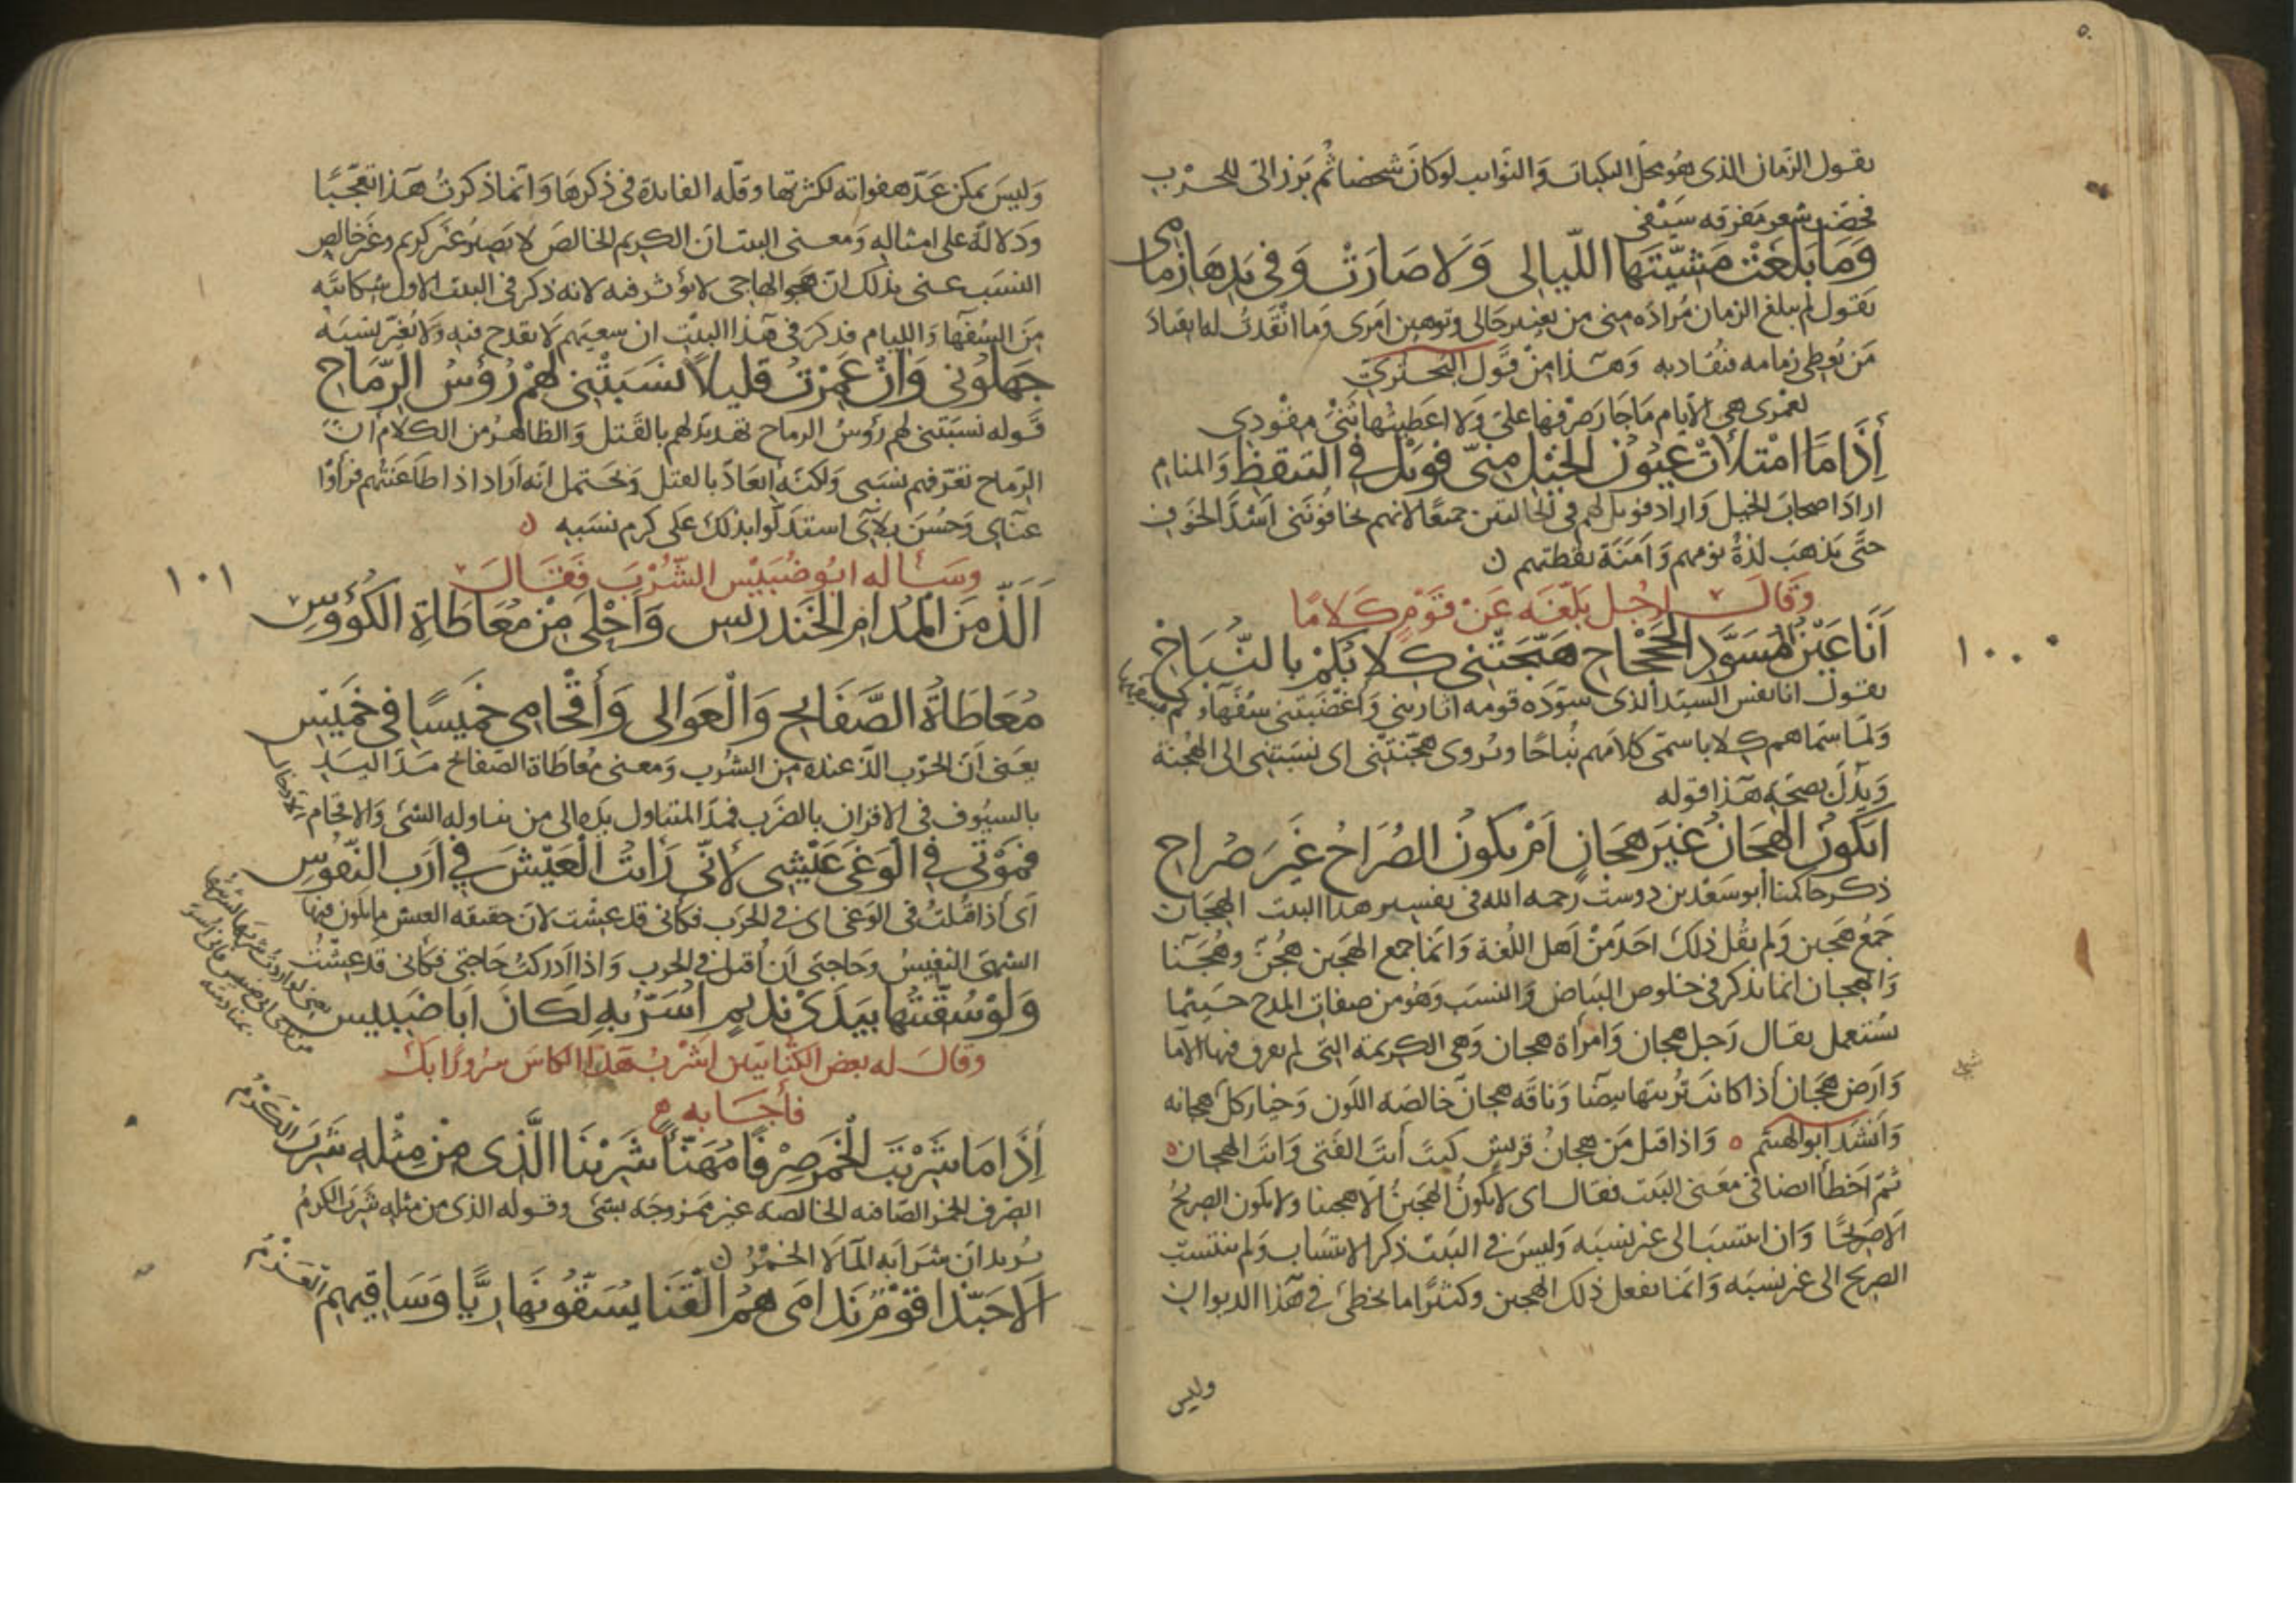 ٥٠
يقول الزمان الذى هو محل النكبات والنوايب لو كان شخصا ثم برز الىّ للحرب
لخضب شعر مفرقه سيفى
وَمَا بَلَغَتْ مَشِيَّتَهَا اللّيالى وَلَا صَارَتْ وَفى يَدِهَا زِمامى
يقول لم يبلغ الزمان مراده منى من تغيير حالى وتوهين امرى وما انقدت لها انقياد
من يعطى زمامه فيقاد به وهذا من قول البحترى
لعمرى هى الايام ما جار صرفها علىّ ولا اعطيتها ثنى مقودى
إِذَا مَا امْتَلأَتْ عُيُونُ الخَيْلِ مِنّى فَوَيْلٌ فِى التيَقّظِ وَالمنامِ
اراد اصحاب الخيل واراد فويل لهم فى الحالتين جميعا لانهم يخافوننى اشد الخوف
حتى يذهب لذة نومهم وامنة يقظتهم
وقال لرجل بلّغه عن قوم كلاما
أَنَا عَيْنُ المُسَوَّدِ الجَحْجَاحِ هَيَّجَتْنى كِلَابُكُمْ بِالنُّبَاحِ
١٠٠
يقول انا نفس السيد الذى سوّده قومه اثارتنى واغضبتنى سفهاوكم
ولما سماهم كلابا سمى كلامهم نباحا ويروى هجّنتنى اى نسبتنى الى الهجنة
ويدل بصحة هذا قوله
اَيَكُونُ الهِجَانُ غَيْرَ هِجَانٍ اَمْ يَكُونُ الصُرَاحُ غَيْرَ صُرَاحِ
ذكر حاكمنا أبو سعد بن دوست رحمه الله فى تفسير هذا البيت الهجان
جمع هجين ولم يقل ذلك احد من اهل اللغة وانما جمع الهجين هُجُنٌ وهُجَنا
والهجان انما يذكر فى خلوص البياض والنسب وهو من صفات المدح حيثما
يستعمل يقال رجل هجان وامراة هجان وهى الكريمة التى لم يعرق فيها الاما
وارض هجان اذا كانت تربتها بيضا وناقه هجان خالصه اللون وخيار كل هجانه
وانشد ابو الهيثم واذا قيل من هجان قريش كنت أنت الفتى وانت الهجان
ثم اخطأ ايضا فى معنى البيت فقال اى لا يكون الهجين الا هجينا ولا يكون الصريح
الا صريحا وان انتسب الى غير نسبه وليس فى البيت ذكر الانتساب ولم ينتسب
الصريح الى غير نسبه وانما يفعل ذلك الهجين وكثيرا ما يخطئ فى هذا الديوان
وليس
وليس يمكن عدّ هفواته لكثرتها وقلّه الفايدة فى ذكرها وانما ذكرت هذا تعجّبا
ودلالة على امثاله ومعنى البيت ان الكريم الخالص لا يصير غير كريم وغير خالص
النسب عنى بذلك ان هجو الهاجى لا يؤثر فيه لانه ذكر فى البيت الاول شكايته
من السفها والليام فذكر فى هذا البيت ان سعيهم لا يقدح فيه ولا يغير نسبه
جَهِلُونى وَانْ عَمِرْتُ قليلاً نَسَبَتْنى لَهُمْ رُؤُسُ الرّمَاحِ
قوله نسبتنى لهم رؤس الرماح تهديد لهم بالقتل والظاهر من الكلام ان
الرماح تعرّفهم نسبى ولكنه ايعاد بالقتل ويحتمل انه اراد اذا طاعنتهم فرأوا
عنآى وحسن بلآى استدلّوا بذلك على كرم نسبه
وسأله ابو ضبيس الشرب فقال
١٠١
أَلَذُّ مِنَ المُدَامِ الخَنْدَرِيسِ وَأَحْلى مِنْ مُعَاطَاةِ الكُؤُوسِ
مُعَاطَاةُ الصَّفَايحِ وَالْعَوالى وَأَقْحَامِى خَمِيسًا فى خَمِيسِ
يعنى ان الحرب الذّ عنده من الشرب ومعنى معاطاة الصفائح مدّ اليد
بالسيوف فى الاقران بالضرب فمدّ المتناول يده الى من يناوله الشئ والاقحام
الادخال
فَمَوْتى فى الْوَغَى عَيْشى لأنّى رَأَيتُ الْعَيْشَ فى أَرَبِ النّفُوسِ
اى اذا قتلت فى الوغى اى فى الحرب فكأنى قد عشت لان حقيقه العيش ما يكون فيها
الشهى النفيس وحاجتى ان أقتل فى الحرب واذا ادركت حاجتى فكأنى قد عشت
وَلَوْ سُقّيتُهَا بِيَدَىْ نديمٍ اُسَرّ بِهِ لَكَانَ ابَا ضَبِيسِ
وقال له بعض الكتابيين اشرب هذا الكاس سرورا بك
فأجابه
إِذَا مَا شَرِبْتَ الْخَمْرَ صِرْفًا مُهَنّأً شَرِبْنَا الَّذى مِنْ مِثْلِهِ شَرِبَ الْكَرْمُ
الصرف الخمر الصافيه الخالصه غير ممزوجة بشئ وقوله الذى من مثله شرب الكرم
يريد ان شرابه الما لا الخمر
اَلا حَبّذا قَوْمٌ نَدامَى هُمُ الْقَنَا يُسَقُّونَهَا رِيًّا وَسَاقِيهِم الْعَزْمُ